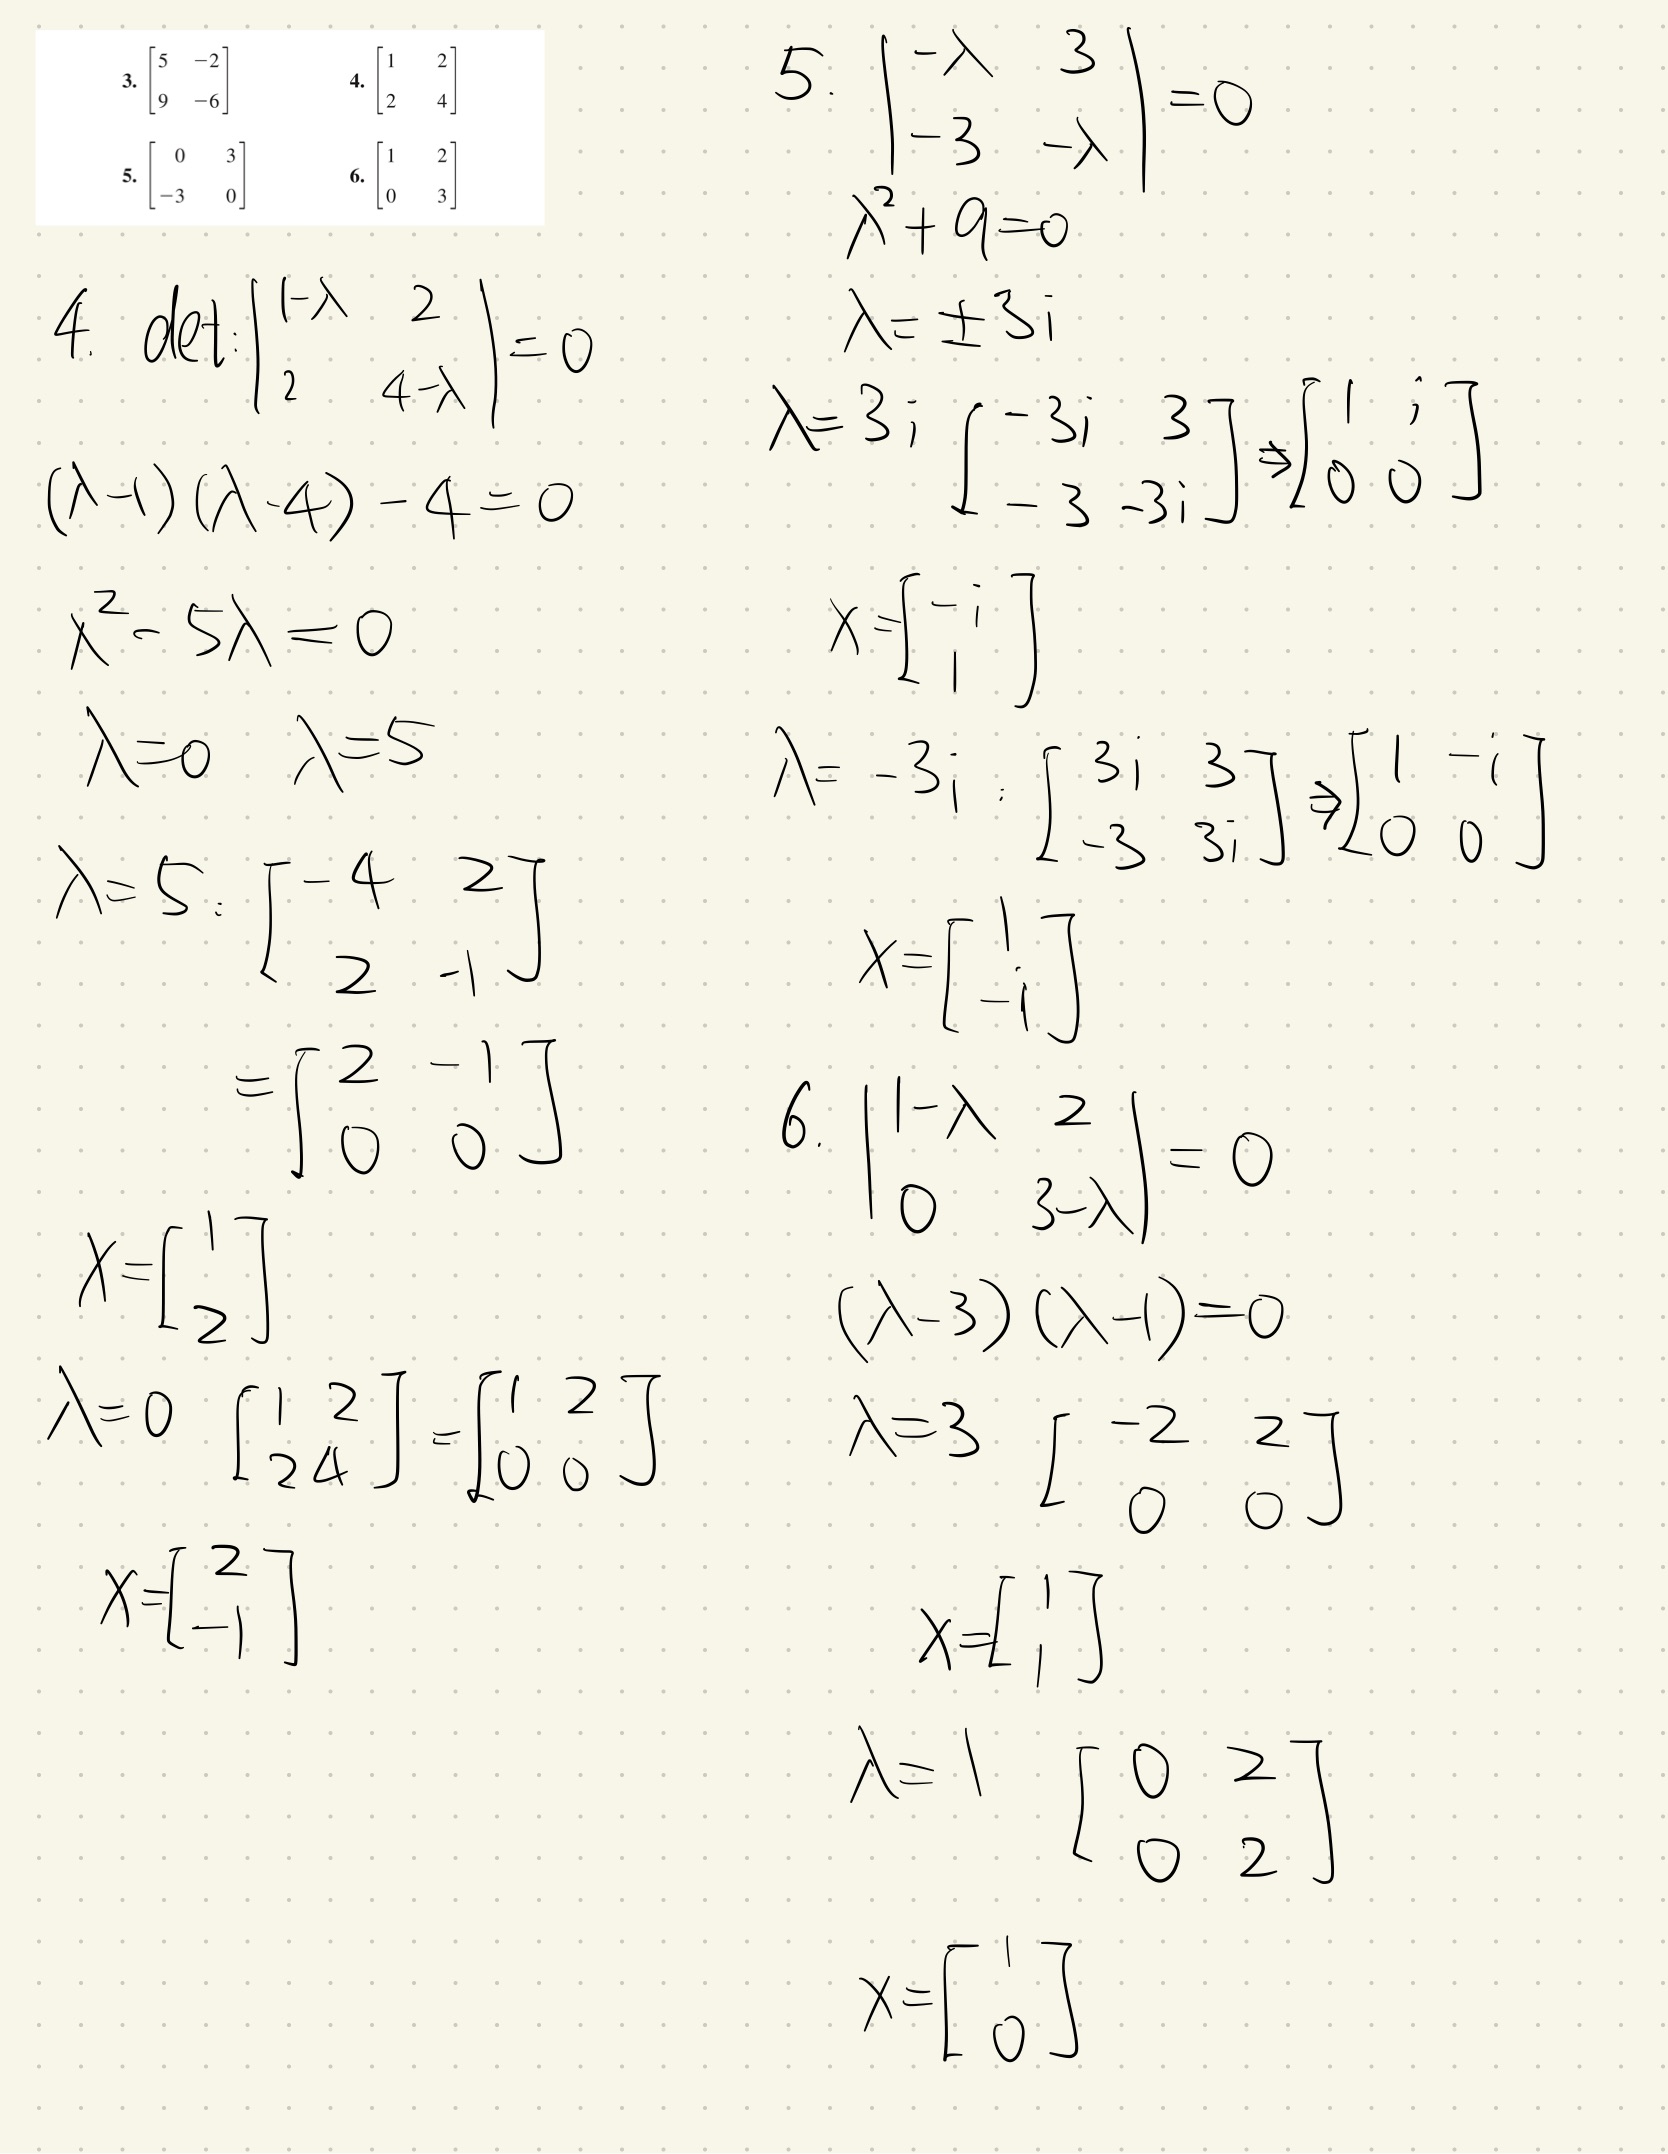 3. [5 −2; 9 −6] 4. [1 2; 2 4]
5. [0 3; −3 0] 6. [1 2; 0 3]
4. det: |1-λ 2; 2 4-λ| = 0
(λ-1)(λ-4) - 4 = 0
λ² - 5λ = 0
λ=0 λ=5
λ=5: [-4 2; 2 -1]
= [2 -1; 0 0]
X = [1; 2]
λ=0 [1 2; 2 4] = [1 2; 0 0]
X = [2; -1]
5. |-λ 3; -3 -λ| = 0
λ² + 9 = 0
λ = ±3i
λ = 3i [-3i 3; -3 -3i] ⇒ [1 i; 0 0]
X = [-i; 1]
λ = -3i: [3i 3; -3 3i] ⇒ [1 -i; 0 0]
X = [1; -i]
6. |1-λ 2; 0 3-λ| = 0
(λ-3)(λ-1) = 0
λ=3 [-2 2; 0 0]
X = [1; 1]
λ = 1 [0 2; 0 2]
X = [1; 0]